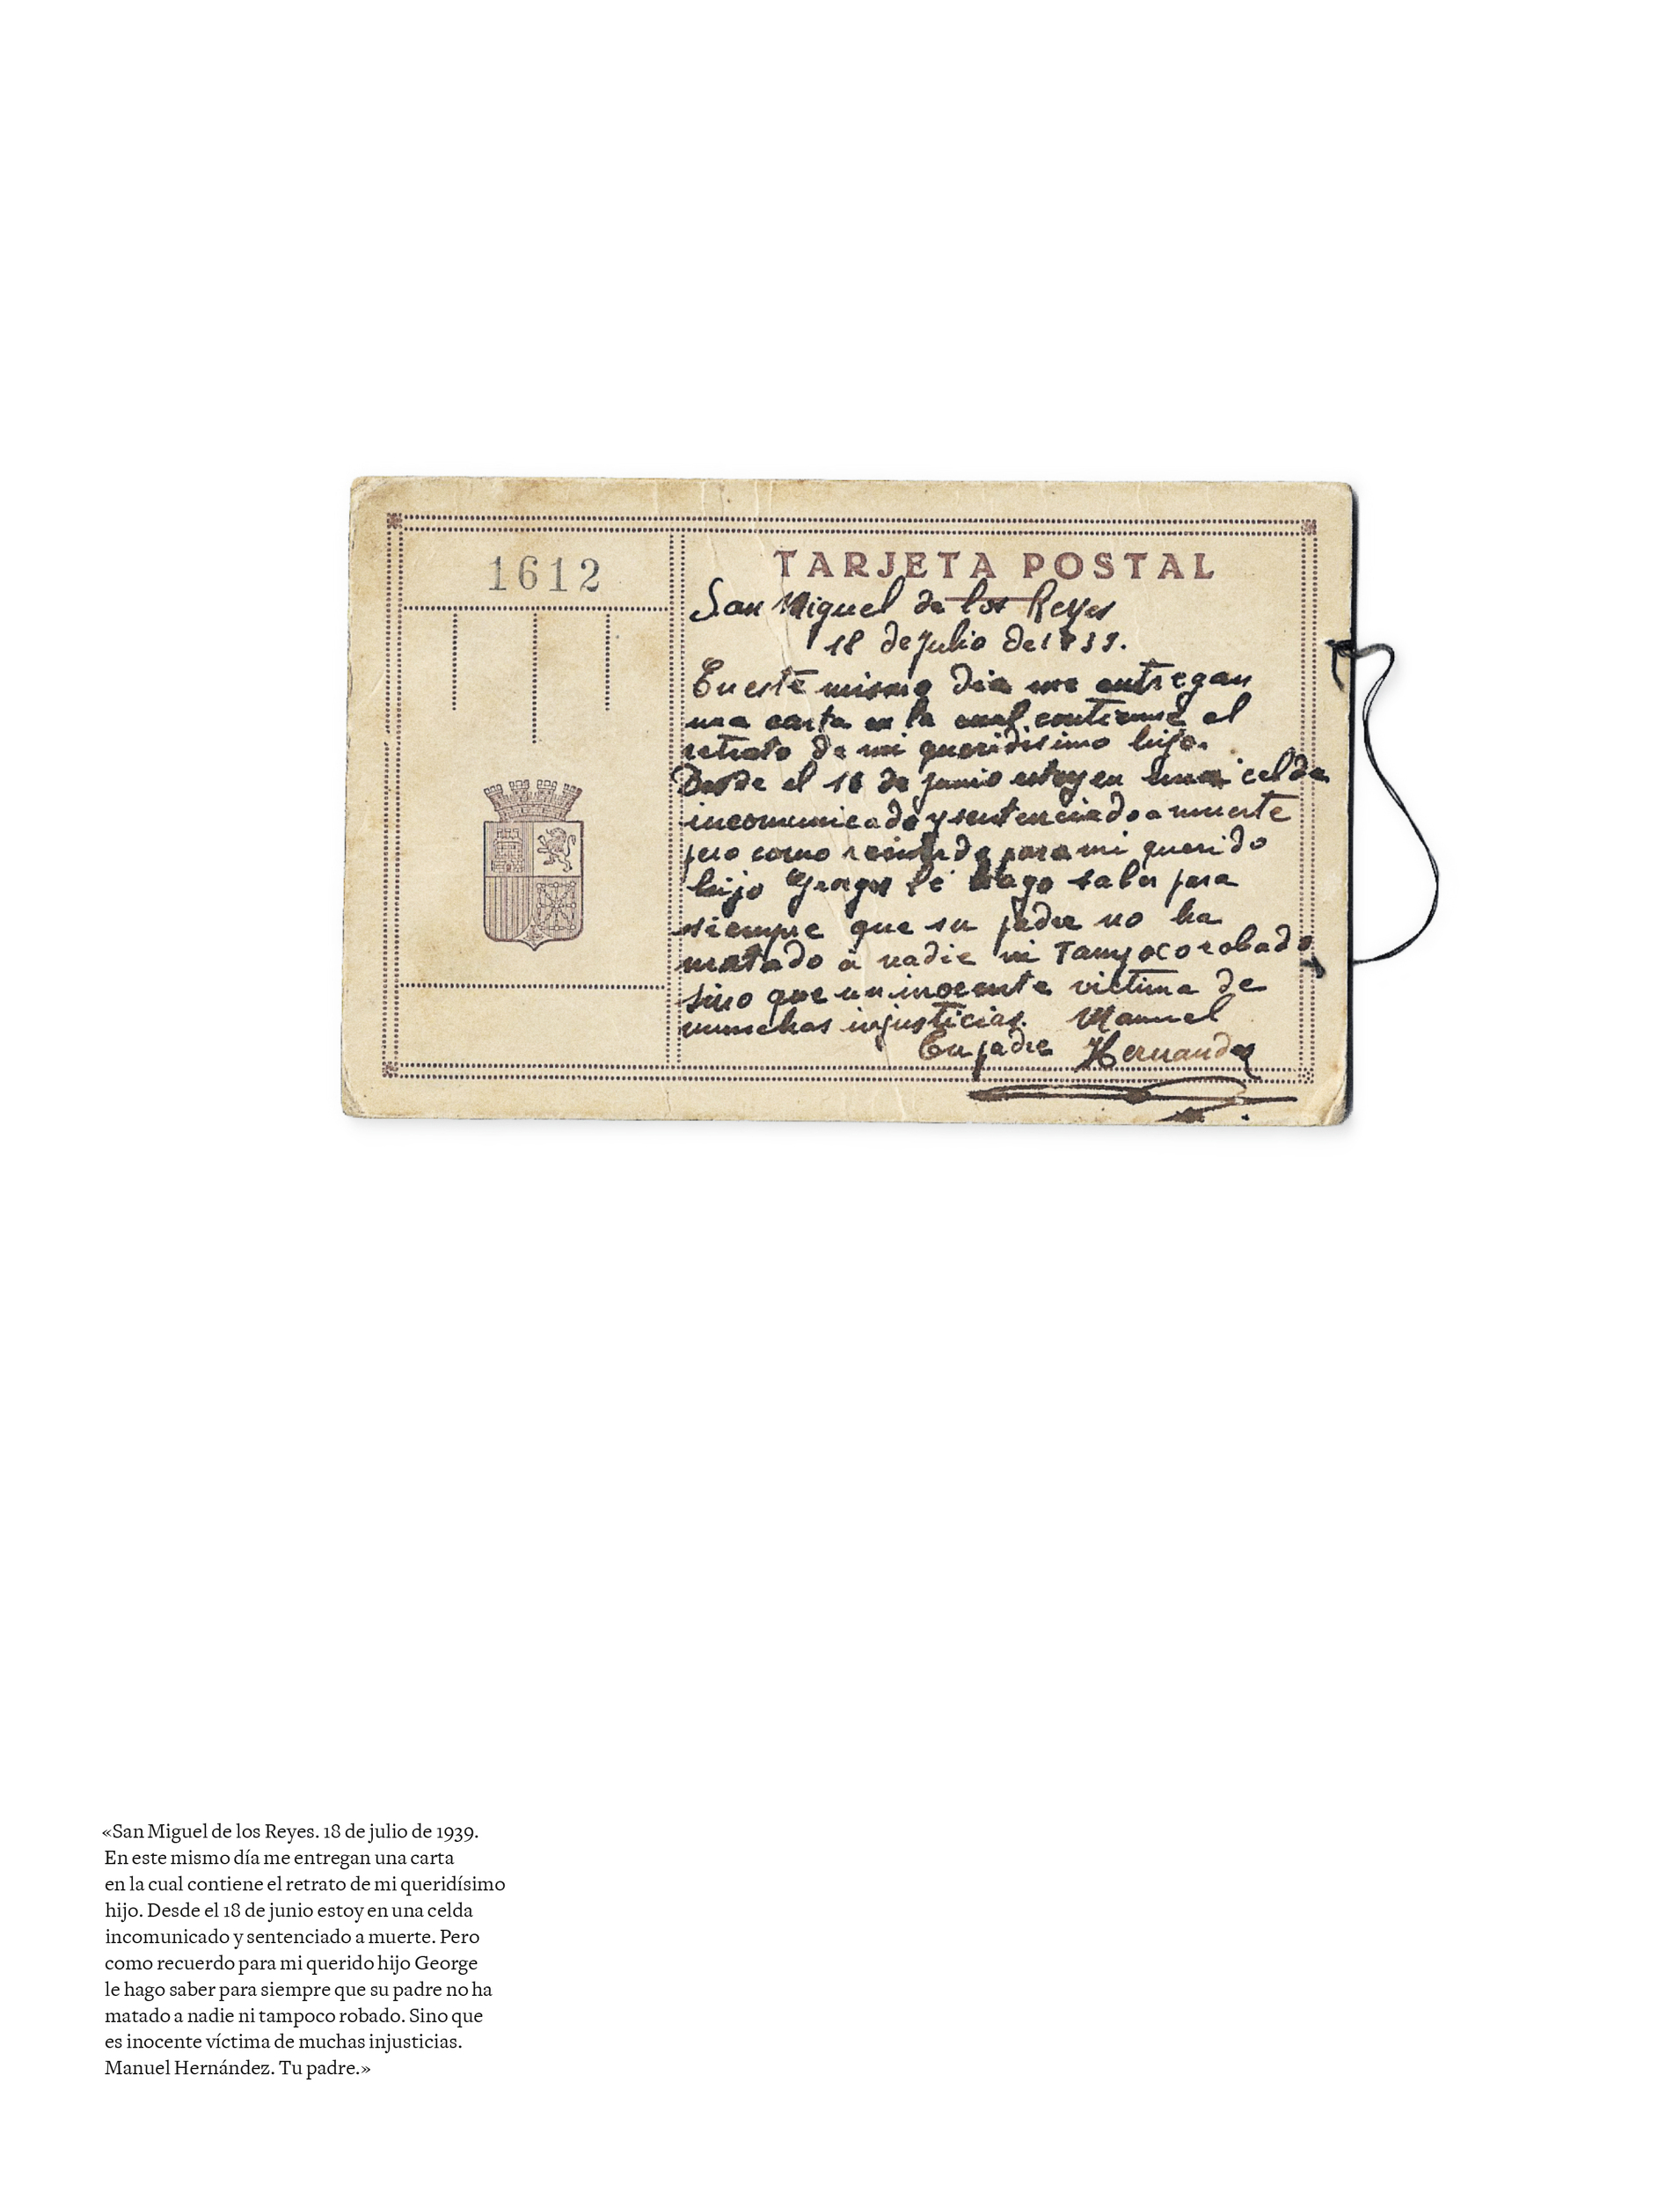 1612
TARJETA POSTAL
San Miguel de los Reyes
18 de Julio de 1939.
En este mismo dia me entregan
una carta en la cual contiene el
retrato de mi queridisimo hijo.
Desde el 18 de junio estoy en una celda
incomunicado y sentenciado a muerte
pero como recuerdo para mi querido
hijo George le hago saber para
siempre que su padre no ha
matado a nadie ni Tampoco robado
sino que un inocente victima de
munchas injusticias. Manuel
Tu padre Hernandez
«San Miguel de los Reyes. 18 de julio de 1939.
En este mismo día me entregan una carta
en la cual contiene el retrato de mi queridísimo
hijo. Desde el 18 de junio estoy en una celda
incomunicado y sentenciado a muerte. Pero
como recuerdo para mi querido hijo George
le hago saber para siempre que su padre no ha
matado a nadie ni tampoco robado. Sino que
es inocente víctima de muchas injusticias.
Manuel Hernández. Tu padre.»